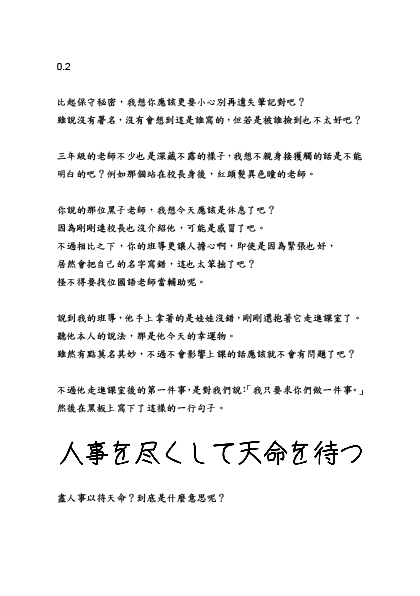 0.2
比起保守祕密，我想你應該更要小心別再遺失筆記對吧？
雖說沒有署名，沒有會想到這是誰寫的，但若是被誰撿到也不太好吧？
三年級的老師不少也是深藏不露的樣子，我想不親身接獲觸的話是不能
明白的吧？例如那個站在校長身後，紅頭髮異色瞳的老師。
你說的那位黑子老師，我想今天應該是休息了吧？
因為剛剛連校長也沒介紹他，可能是感冒了吧。
不過相比之下，你的班導更讓人擔心啊，即使是因為緊張也好，
居然會把自己的名字寫錯，這也太笨拙了吧？
怪不得要找位國語老師當輔助呢。
說到我的班導，他手上拿著的是娃娃沒錯，剛剛還抱著它走進課室了。
聽他本人的說法，那是他今天的幸運物。
雖然有點莫名其妙，不過不會影響上課的話應該就不會有問題了吧？
不過他走進課室後的第一件事，是對我們說：「我只要求你們做一件事。」
然後在黑板上寫下了這樣的一行句子。
人事を尽くして天命を待つ
盡人事以待天命？到底是什麼意思呢？